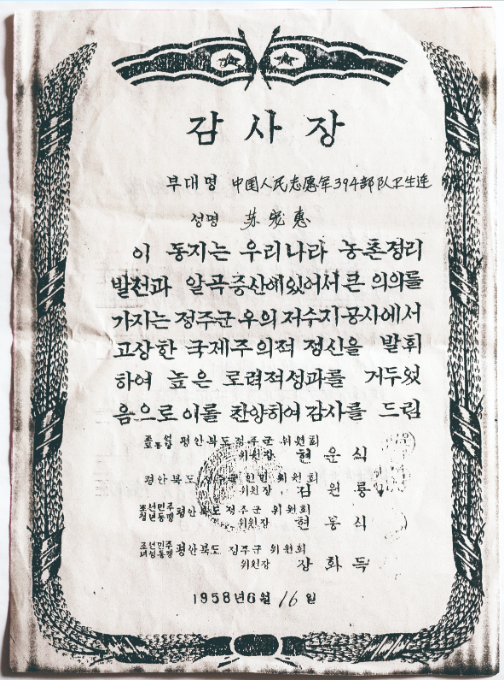 감사장
부대명 中国人民志愿军394部队卫生连
성명 苏宏惠
이 동지는 우리나라 농촌정리
발전과 알곡증산에있어서 큰 의의를
가지는 정주군 우의 저수지공사에서
고상한 국제주의적 정신을 발휘
하여 높은 로력적성과를 거두었
음으로 이를 찬양하여 감사를 드림
평안북도정주군 위원회
위원장 현운식
평안북도 정주군 인민 위원회
위원장 김원룡
조선민주청년동맹 평안북도 정주군 위원회
위원장 현봉식
조선민주녀성동맹 평안북도 정주군 위원회
위원장 장화득
1958년6월 16일